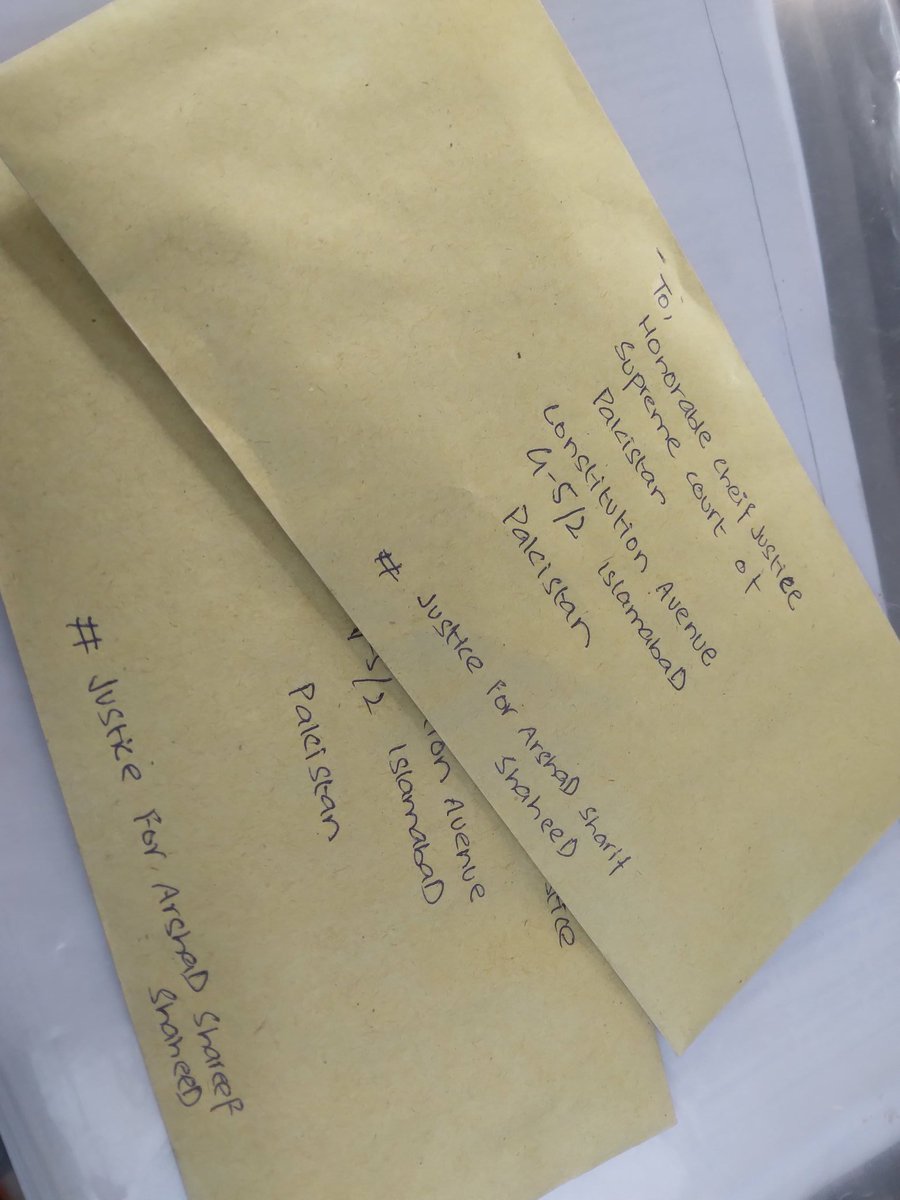 - To,
Honorable cheif Justice
Supreme court of
Pakistan
Constitution Avenue
G-5/2 IslamabaD
Pakistan
# Justice For ArshaD Sharif
ShaheeD
tice
tion Avenue
5/2 IslamabaD
Pakistan
# Justice For, ArshaD ShareeF
ShaheeD